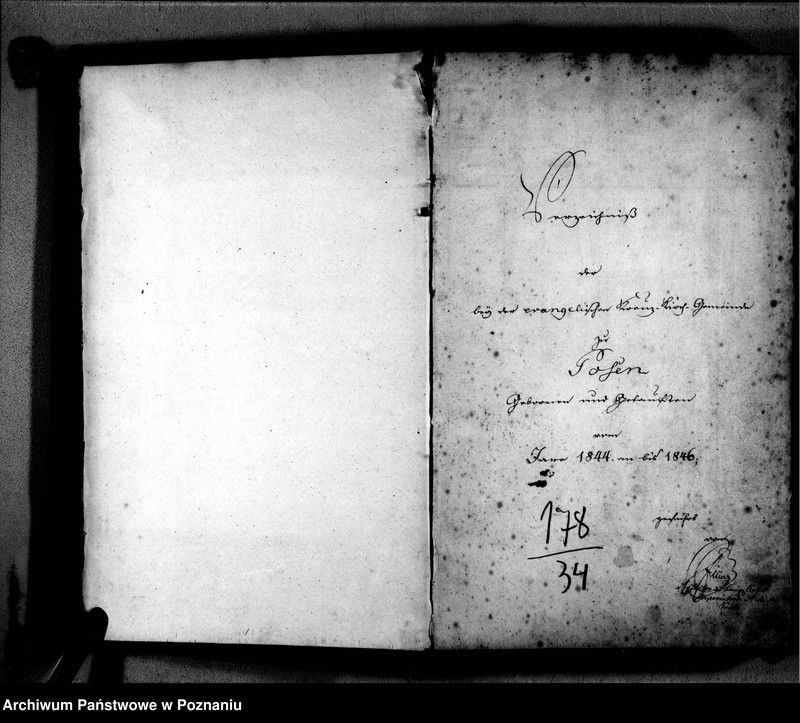 Verzeichniß
der
bey der evangelischen Kreuz-Kirch-Gemeinde
zu
Posen
Gebornen und Getauften
vom
Jare 1844. an bis 1846.
178
34
geführt
vom
Archiwum Państwowe w Poznaniu